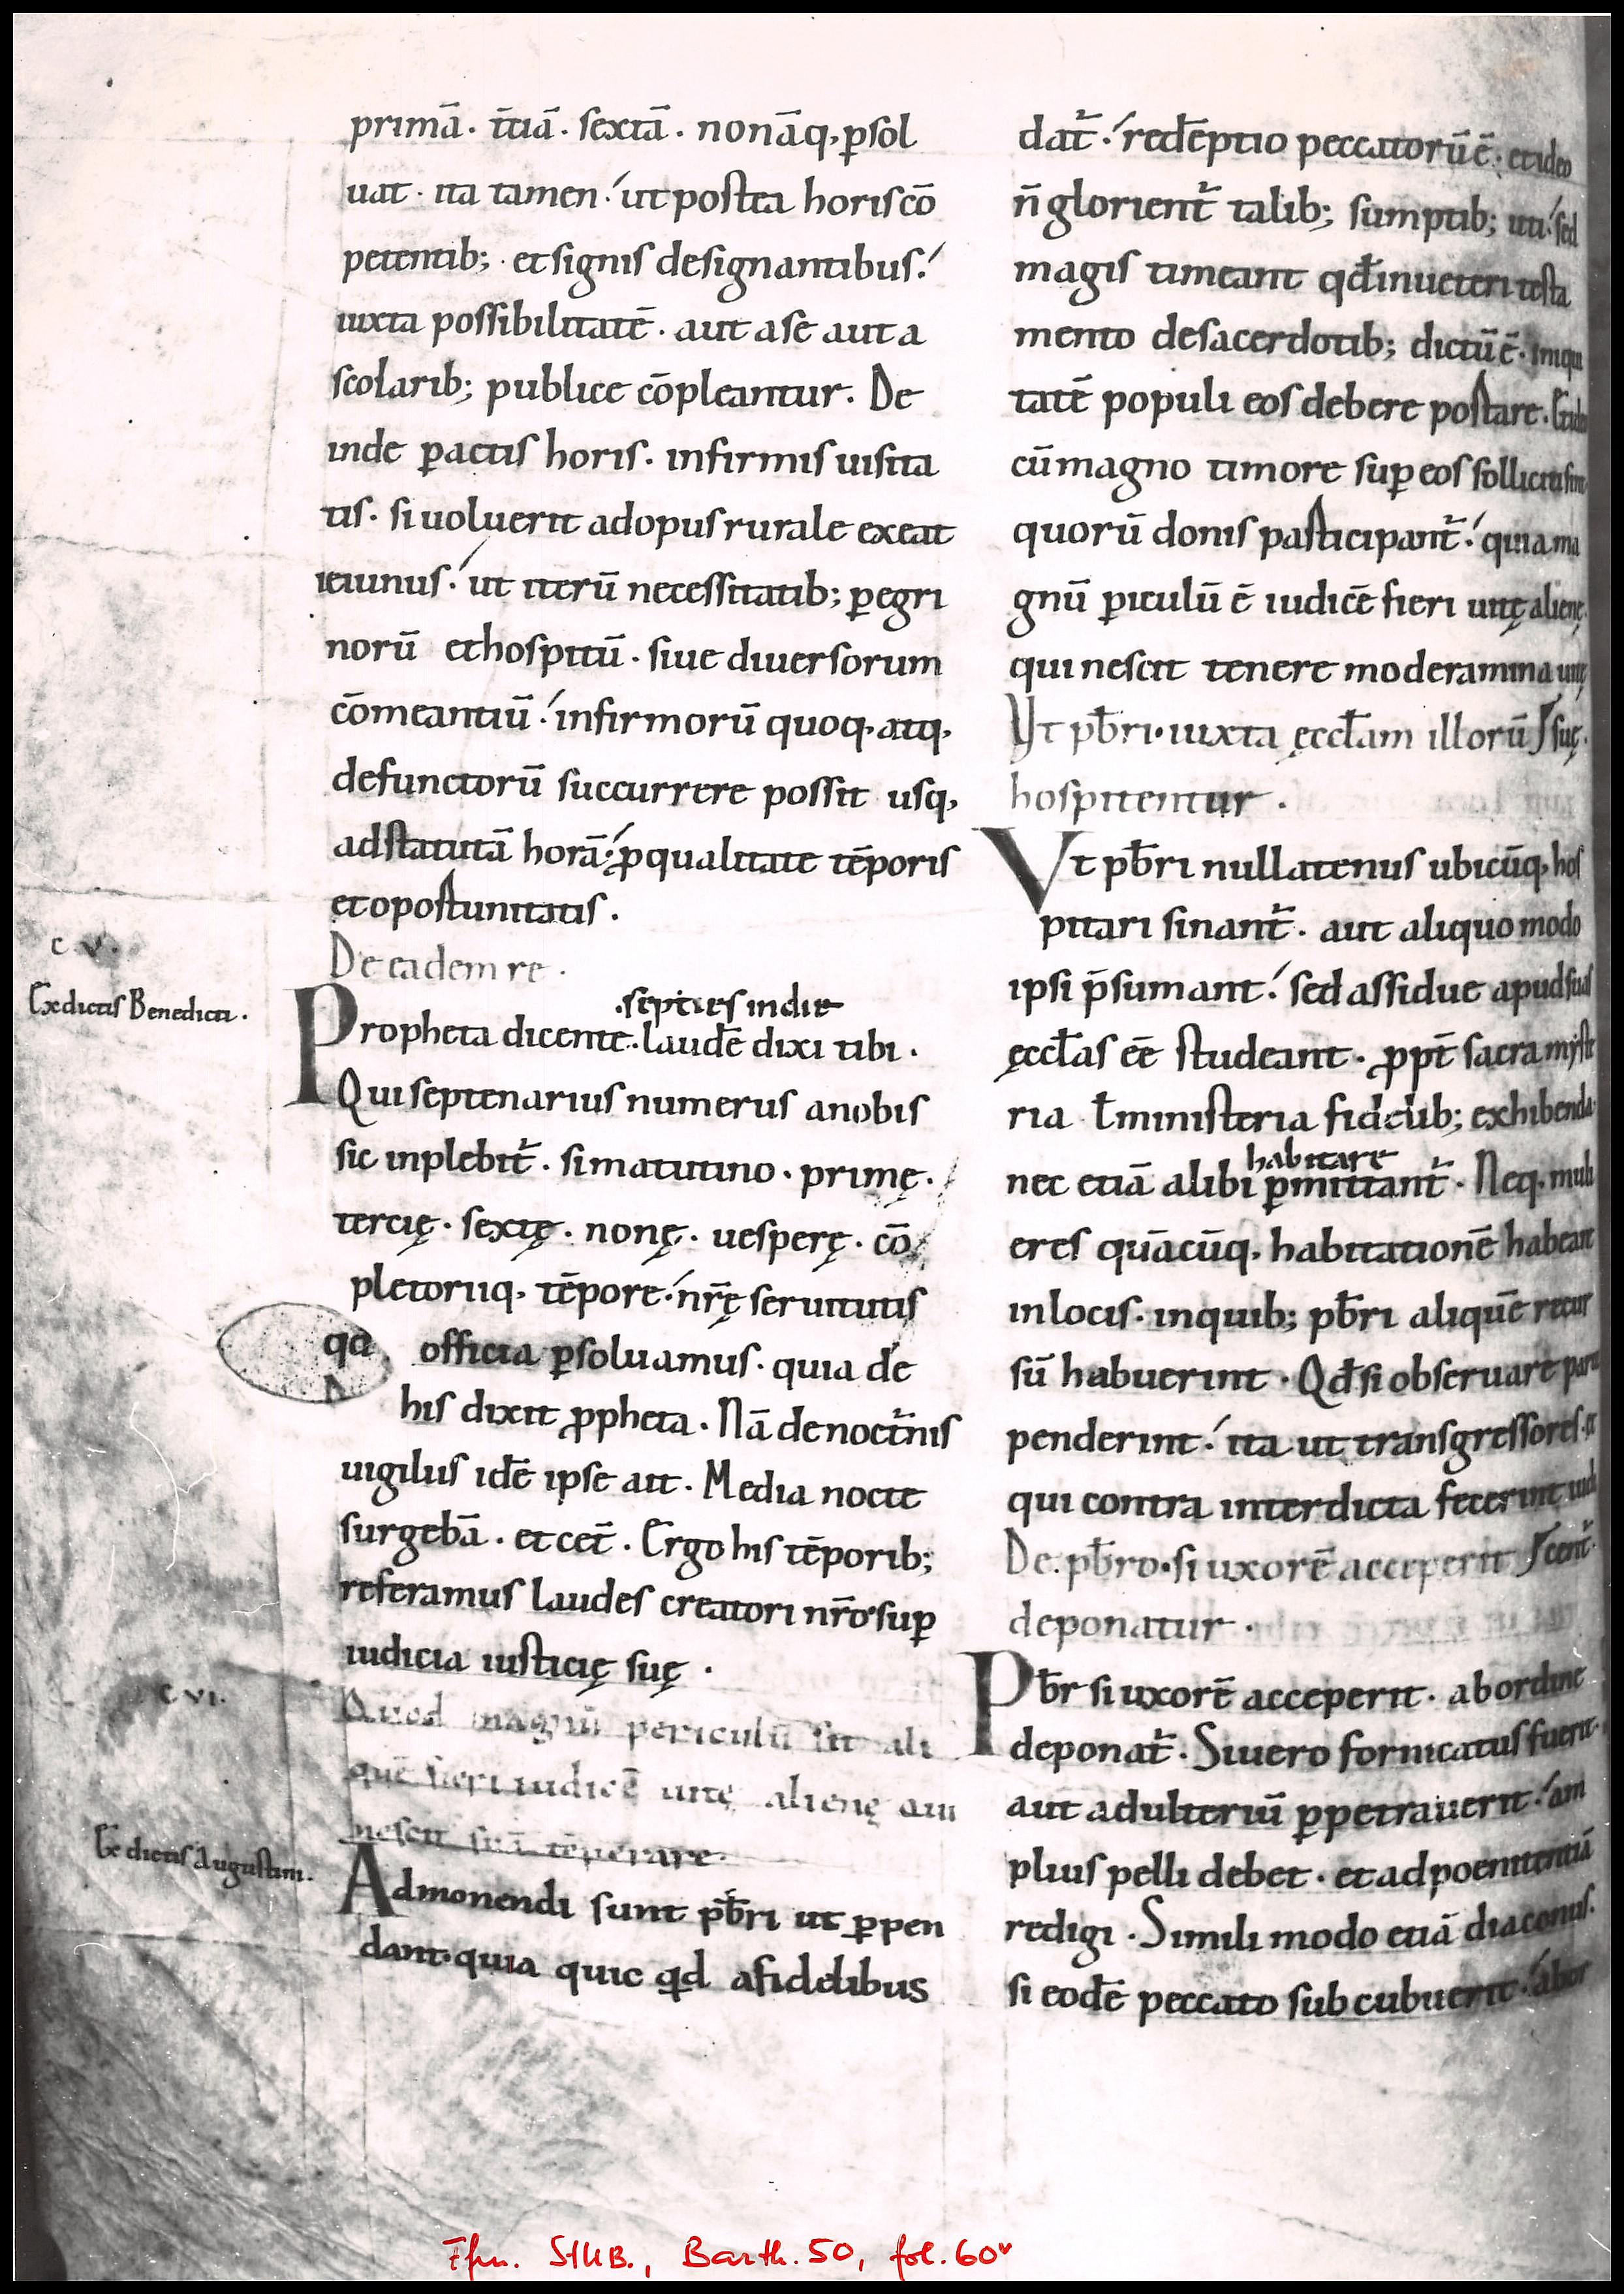 primā. t̄ciā. sextā. nonāq, ꝑsol
uat. ita tamen. ut postea horis cō
petentib; et signis designantibus.
iuxta possibilitatē. aut a se aut a
scolarib; publice cōpleantur. De
inde ꝑactis horis. infirmis uisita
tis. si uoluerit ad opus rurale exeat
ieiunus. ut iterū necessitatib; ꝑegri
norū et hospitū. siue diuersorum
cōmeantiū. infirmorū quoq, atq,
defunctorū succurrere possit usq,
ad statutā horā. ꝓ qualitate tēporis
et oportunitatis.
De eadem re.
c. v.
Ex dictis Benedicti.
.septies in die
Propheta dicente. laudē dixi tibi.
Qui septenarius numerus a nobis
sic inplebit᷑. si matutino. primę.
tercię. sextę. nonę. uesperę. cō
pletoriiq, tēpore. nr̄ę seruitutis
officia ꝑsoluamus. quia de
qd
his dixit ꝓpheta. Nā de noct᷑nis
uigiliis idē ipse ait. Media nocte
surgebā. et cet̄. Ergo his tēporib;
referamus laudes creatori nr̄o sup̱
iudicia iusticię suę.
c. vi.
Quod magnū periculū sit ali
quē fieri iudicē uitę alienę qui
nescit suā tēperare.
Ex dictis Augustini.
Admonendi sunt pb̄ri ut ꝑpen
dant. quia quic qd a fidelibus
dat᷑. redēptio peccatorū ē. et ideo
n̄ glorient᷑ talib; sumptib; uti. sed
magis timeant qđ in ueteri testa
mento de sacerdotib; dictū ē. iniqui
tatē populi eos debere portare. Et ideo
cū magno timore suꝑ eos solliciti sint
quorū donis participant᷑. quia ma
gnū ꝑiculū ē iudicē fieri uitę alienę.
qui nescit tenere moderamina uitę
Ut pb̄ri. iuxta ęccłam illorū suę.
hospitentur.
Vt pb̄ri nullatenus ubicūq, hos
pitari sinant᷑. aut aliquo modo
ipsi p̄sumant. sed assidue apud suas
ęccłas eē studeant. ꝓpt̄ sacra myste
ria ł ministeria fidelib; exhibenda.
habitare
nec etiā alibi ꝑmittant᷑. Neq, muli
eres quācūq, habitationē habeant
in locis. in quib; pb̄ri aliquē recur
sū habuerint. Qđ si obseruare parui
penderint. ita ut transgressores. et
qui contra interdicta fecerint iudi
De. pb̄ro. si uxorē acceperit cent᷑.
deponatur.
Pb̄r si uxorē acceperit. ab ordine
deponat᷑. Si uero fornicatus fuerit.
aut adulteriū ꝑpetrauerit. am
plius pelli debet. et ad poenitentiā
redigi. Simili modo etiā diaconus.
si eodē peccato subcubuerit. ab or
StUB., Barth. 50, fol. 60v